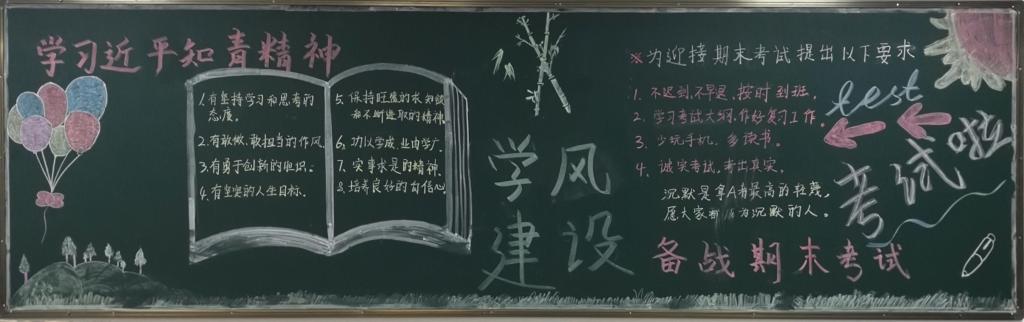 学习近平知青精神
1.有坚持学习和思考的
态度。
2.有敢做、敢担当的作风
3.有勇于创新的胆识。
4.有坚定的人生目标。
5.保持旺盛的求知欲
和不断进取的精神
6.功以学成,业由学广。
7.实事求是的精神
8.培养良好的自信心
学风
建设
※为迎接期末考试提出以下要求
1.不迟到,不早退,按时到班。
2.学习考试大纲,作好复习工作。
3.少玩手机,多读书。
4.诚实考试,考出真实。
沉默是拿A者最高的轻蔑,
愿大家都 为沉默的人。
test
考试啦
备战期末考试